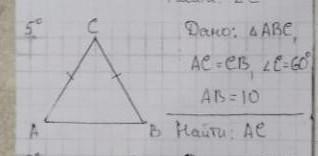 5°
C
A
B
Дано: △ABC,
AC = CB, ∠C = 60°
AB = 10
Найти: AC